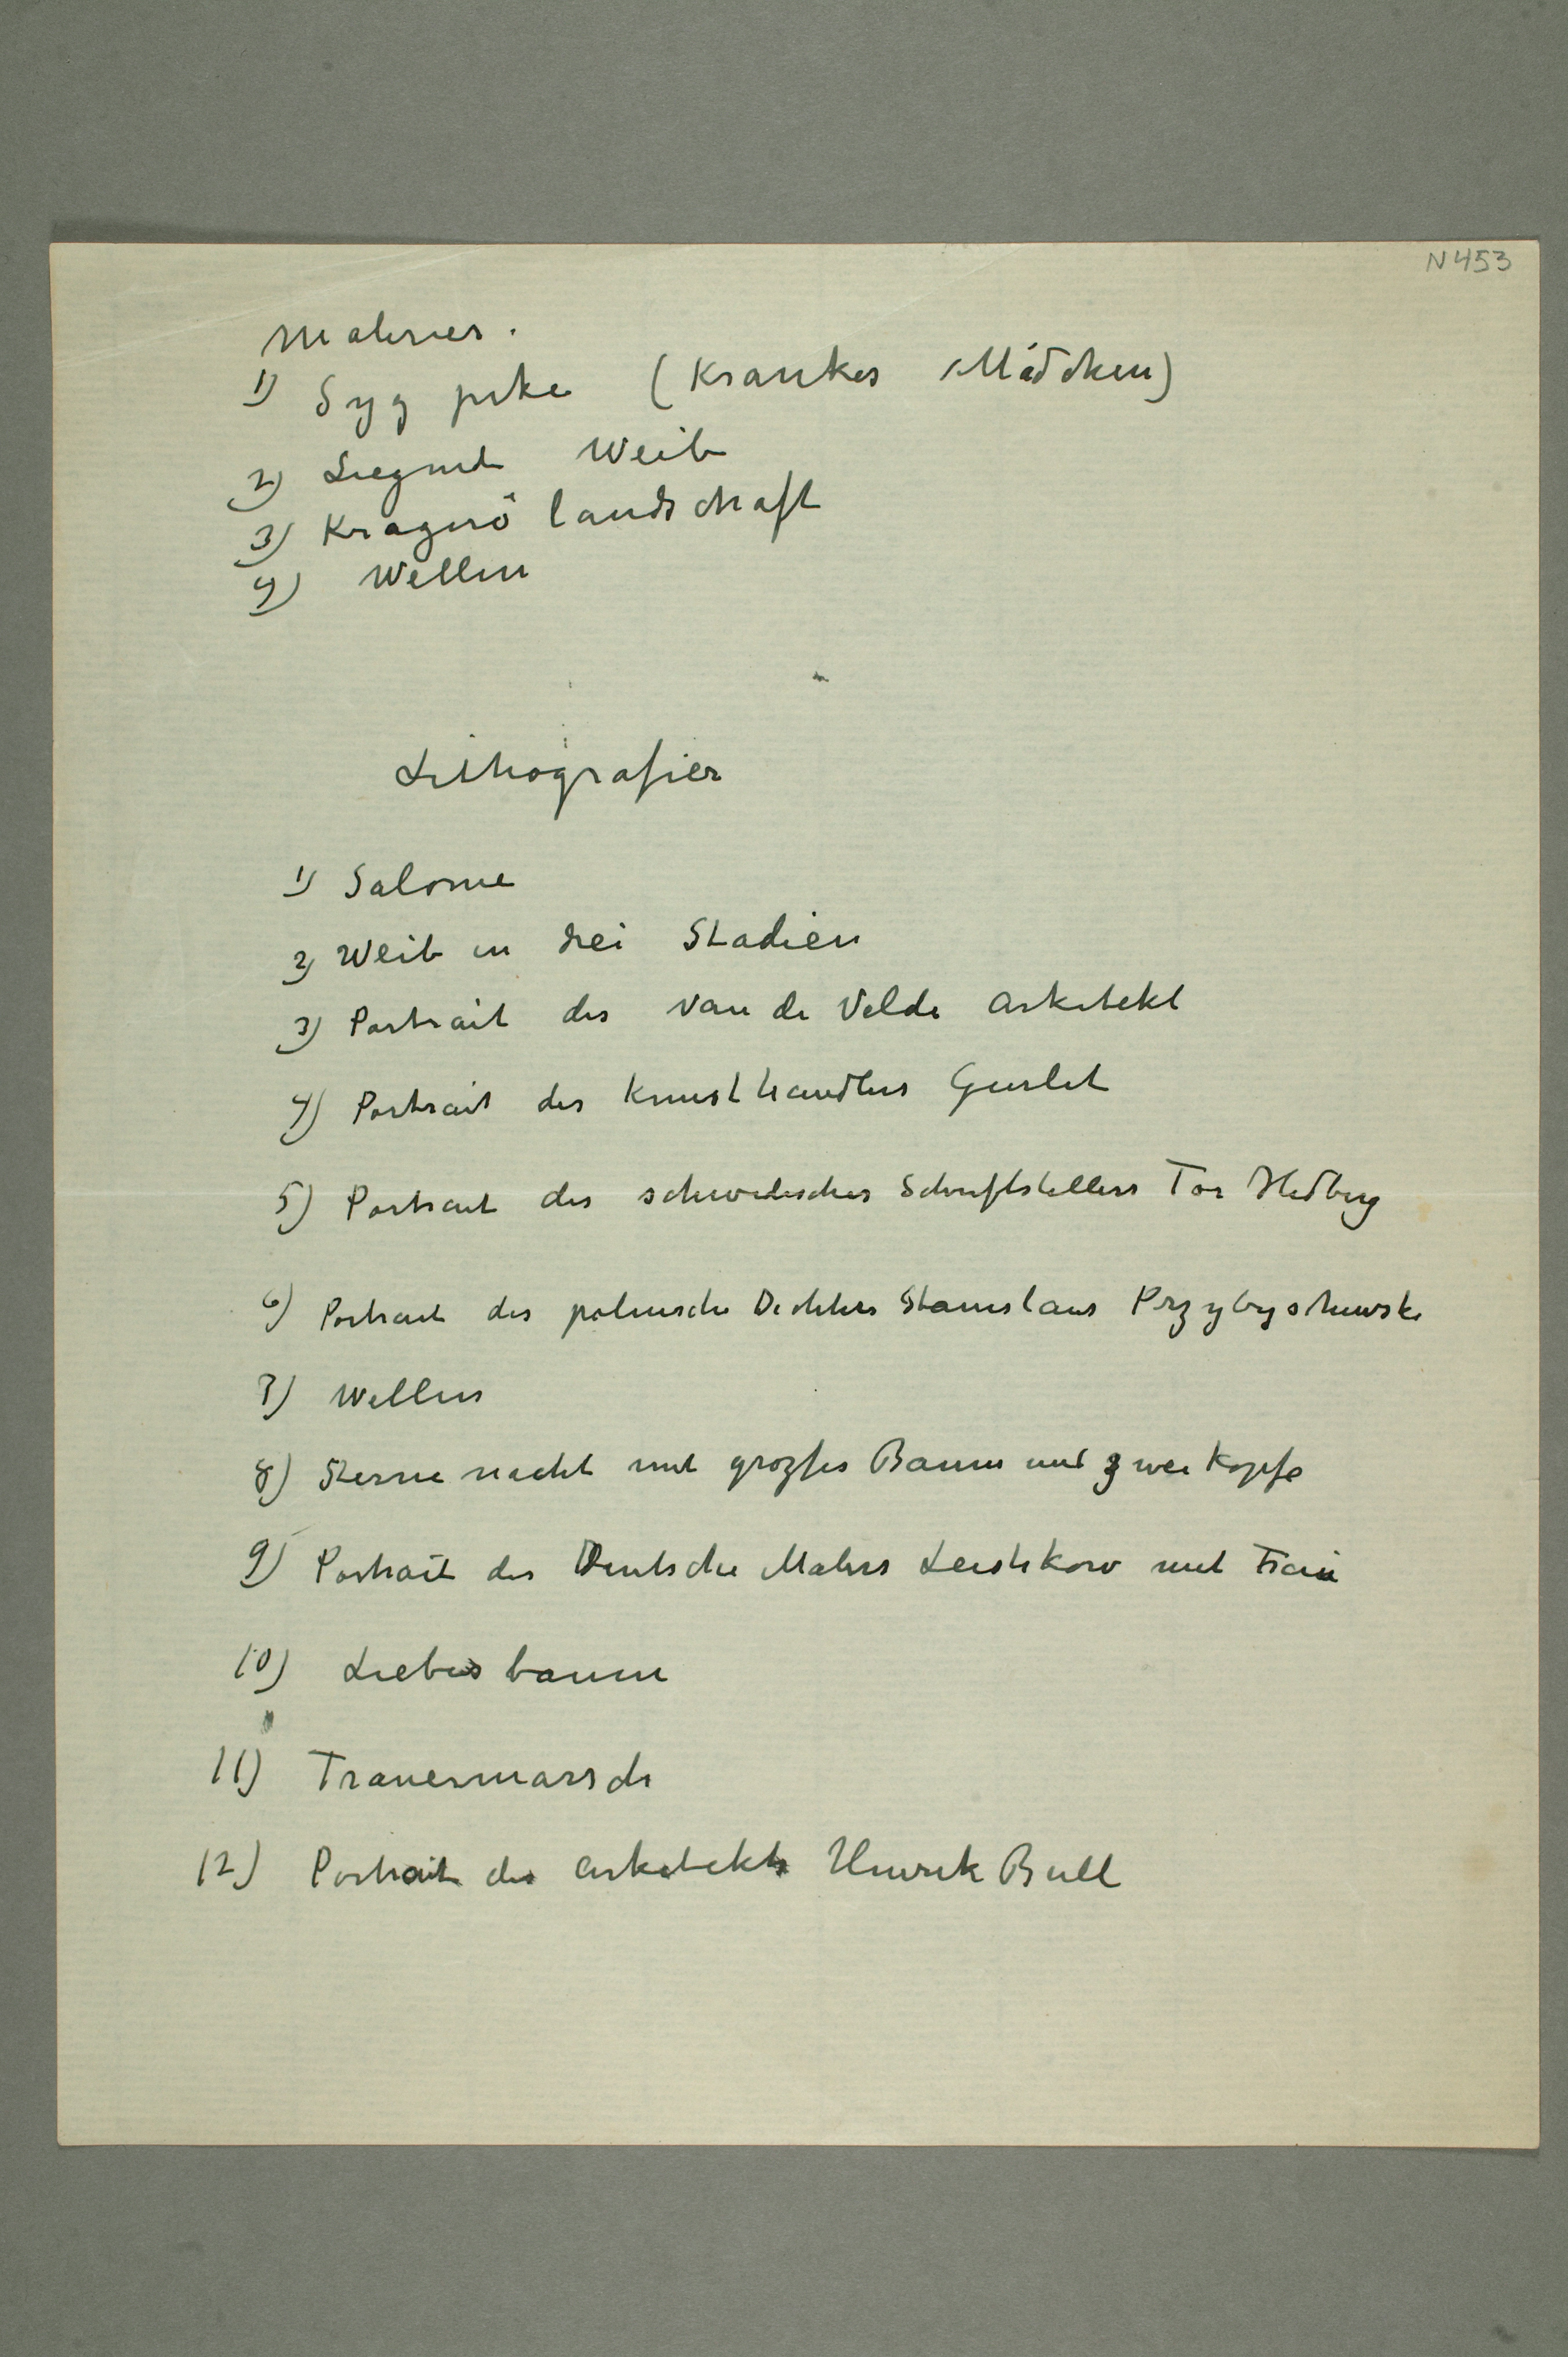 N 453
Malerier.
1) Syg pike (Krankes Mädchen)
2) Liegende Weib
3) Kragerö landschaft
4) Wellen
Lithografier
1) Salome
2) Weib in drei Stadien
3) Portrait des Van de Velde Arkitekt
4) Portrait des Kunsthandlers Gurlit
5) Portrait des schwedisches Schriftstellers Tor Hedberg
6) Portrait des polnische Dichters Stanislaus Przybyshewski
7) Wellen
8) Sterne nacht mit grozses Baum und zwei Kopfe
9) Portrait des Deutsche Malers Leistikow mit Frau
10) Liebesbaum
11) Trauermarsch
12) Portrait des Arkitekts Henrik Bull